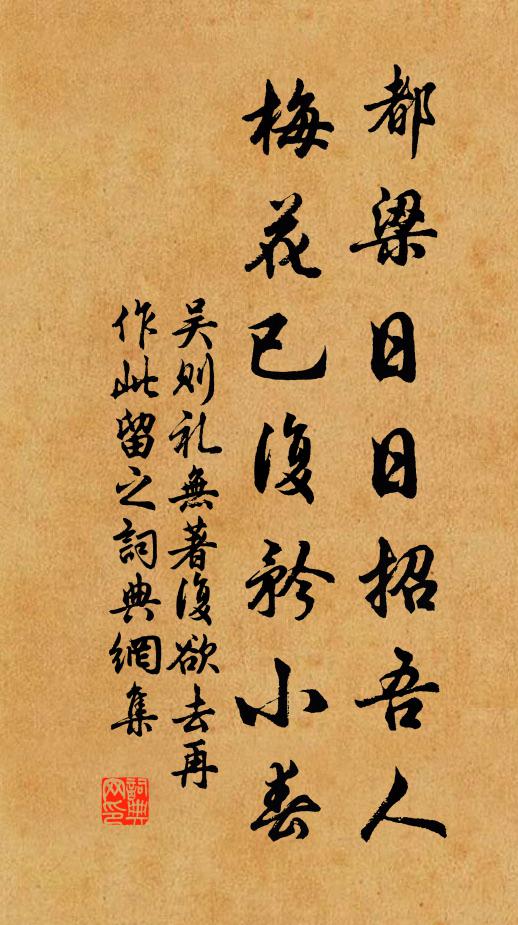 都梁日日招吾人
梅花已復矜小春
吴则礼無著復欲去再
作此留之詞典網集
詞典网印